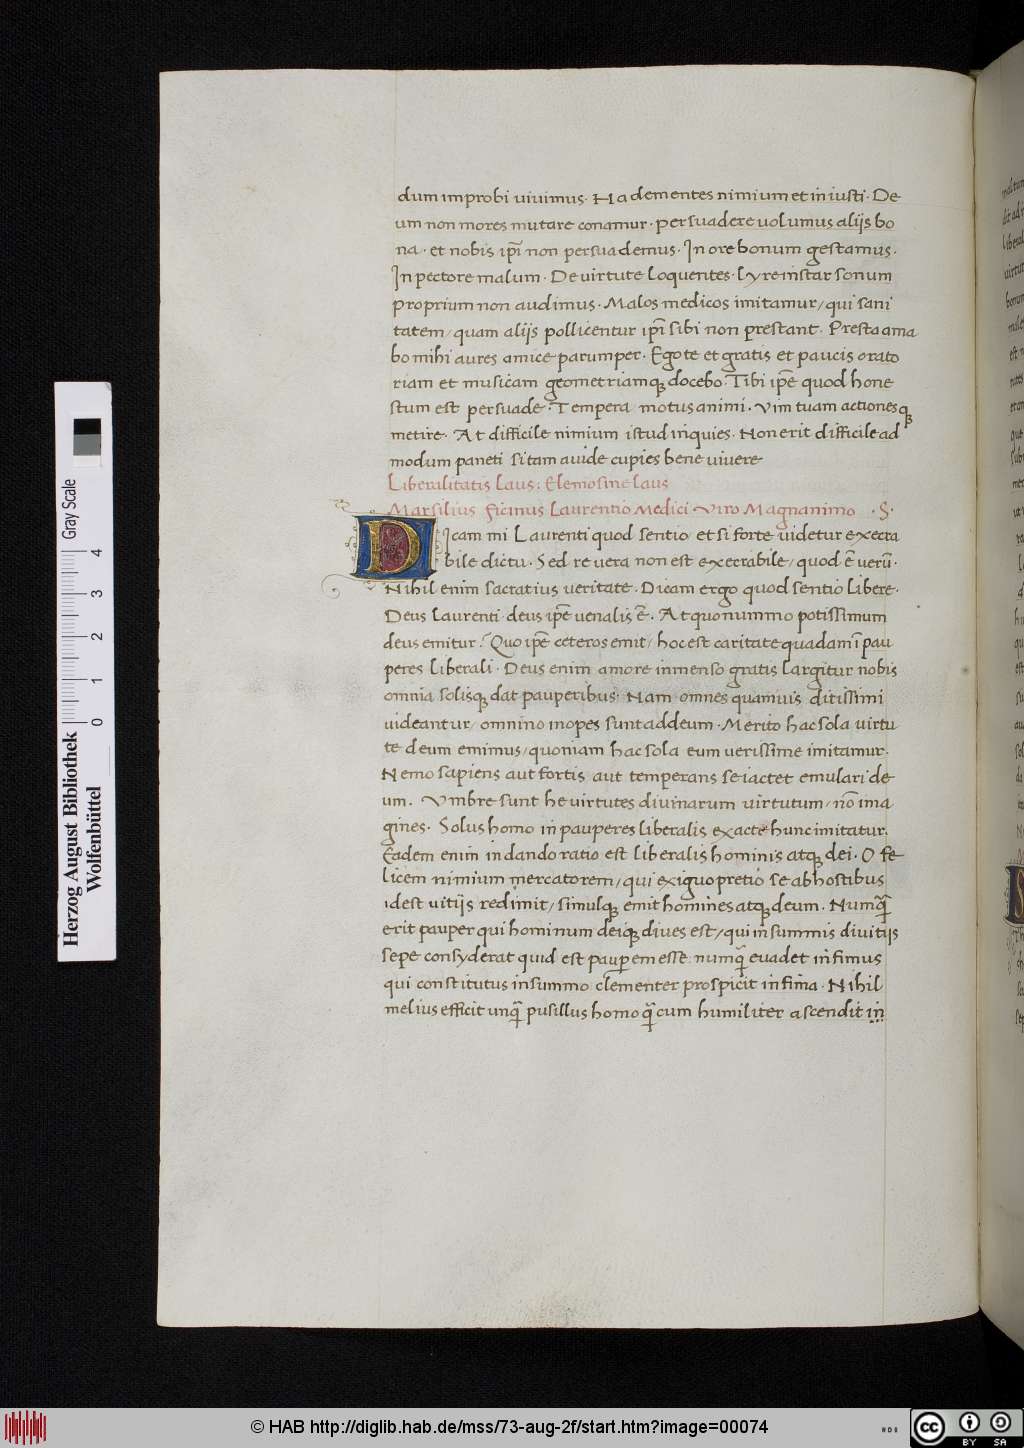 dum improbi uiuimus. Ha dementes nimium et iniusti. De
um non mores mutare conamur. persuadere uolumus alijs bo
na. et nobis ip̅i non persuademus. In ore bonum gestamus.
In pectore malum. De uirtute loquentes. Lyre instar sonum
proprium non audimus. Malos medicos imitamur/ qui sani
tatem/ quam alijs pollicentur ip̅i sibi non prestant. Presta ama
bo mihi aures amice parumper. Ego te et gratis et paucis orato
riam et musicam geometriamq; docebo. Tibi ip̅e quod hone
stum est persuade. Tempera motus animi. Vim tuam actionesq;
metire. At difficile nimium istud inquies. Non erit difficile ad
modum paneti si tam auide cupies bene uiuere
Liberalitatis Laus: Elemosine laus
Marsilius ficinus Laurentio Medici Viro Magnanimo .S.
Dicam mi Laurenti quod sentio et si forte uidetur execra
bile dictu. Sed re uera non est execrabile/ quod e̅ ueru̅.
Nihil enim sacratius ueritate. Dicam ergo quod sentio libere.
Deus Laurenti deus ip̅e uenalis e̅. At quo nummo potissimum
deus emitur? Quo ip̅e ceteros emit/ hoc est caritate quadam i̅ pau
peres liberali. Deus enim amore inmenso gratis largitur nobis
omnia solisq; dat pauperibus. Nam omnes quamuis ditissimi
uideantur/ omnino inopes sunt ad deum. Merito hac sola uirtu
te deum emimus/ quoniam hac sola eum uerissime imitamur.
Nemo sapiens aut fortis aut temperans se iactet emulari de
um. Vmbre sunt he uirtutes diuinarum uirtutum/ no̅ ima
gines. Solus homo in pauperes liberalis exacte hunc imitatur.
Eadem enim in dando ratio est liberalis hominis atq; dei. O fe
licem nimium mercatorem/ qui exiguo pretio se ab hostibus
idest uitijs redimit/ simulq; emit homines atq; deum. Numq̅
erit pauper qui hominum deiq; diues est/ qui in summis diuitijs
sepe consyderat quid est paup̲em esse. numq̅ euadet infimus
qui constitutus in summo clementer prospicit infima. Nihil
melius efficit unq̅ pusillus homo q̅ cum humiliter ascendit in
Herzog August Bibliothek
Wolfenbüttel
Gray Scale
0 1 2 3 4
© HAB http://diglib.hab.de/mss/73-aug-2f/start.htm?image=00074
cc BY SA